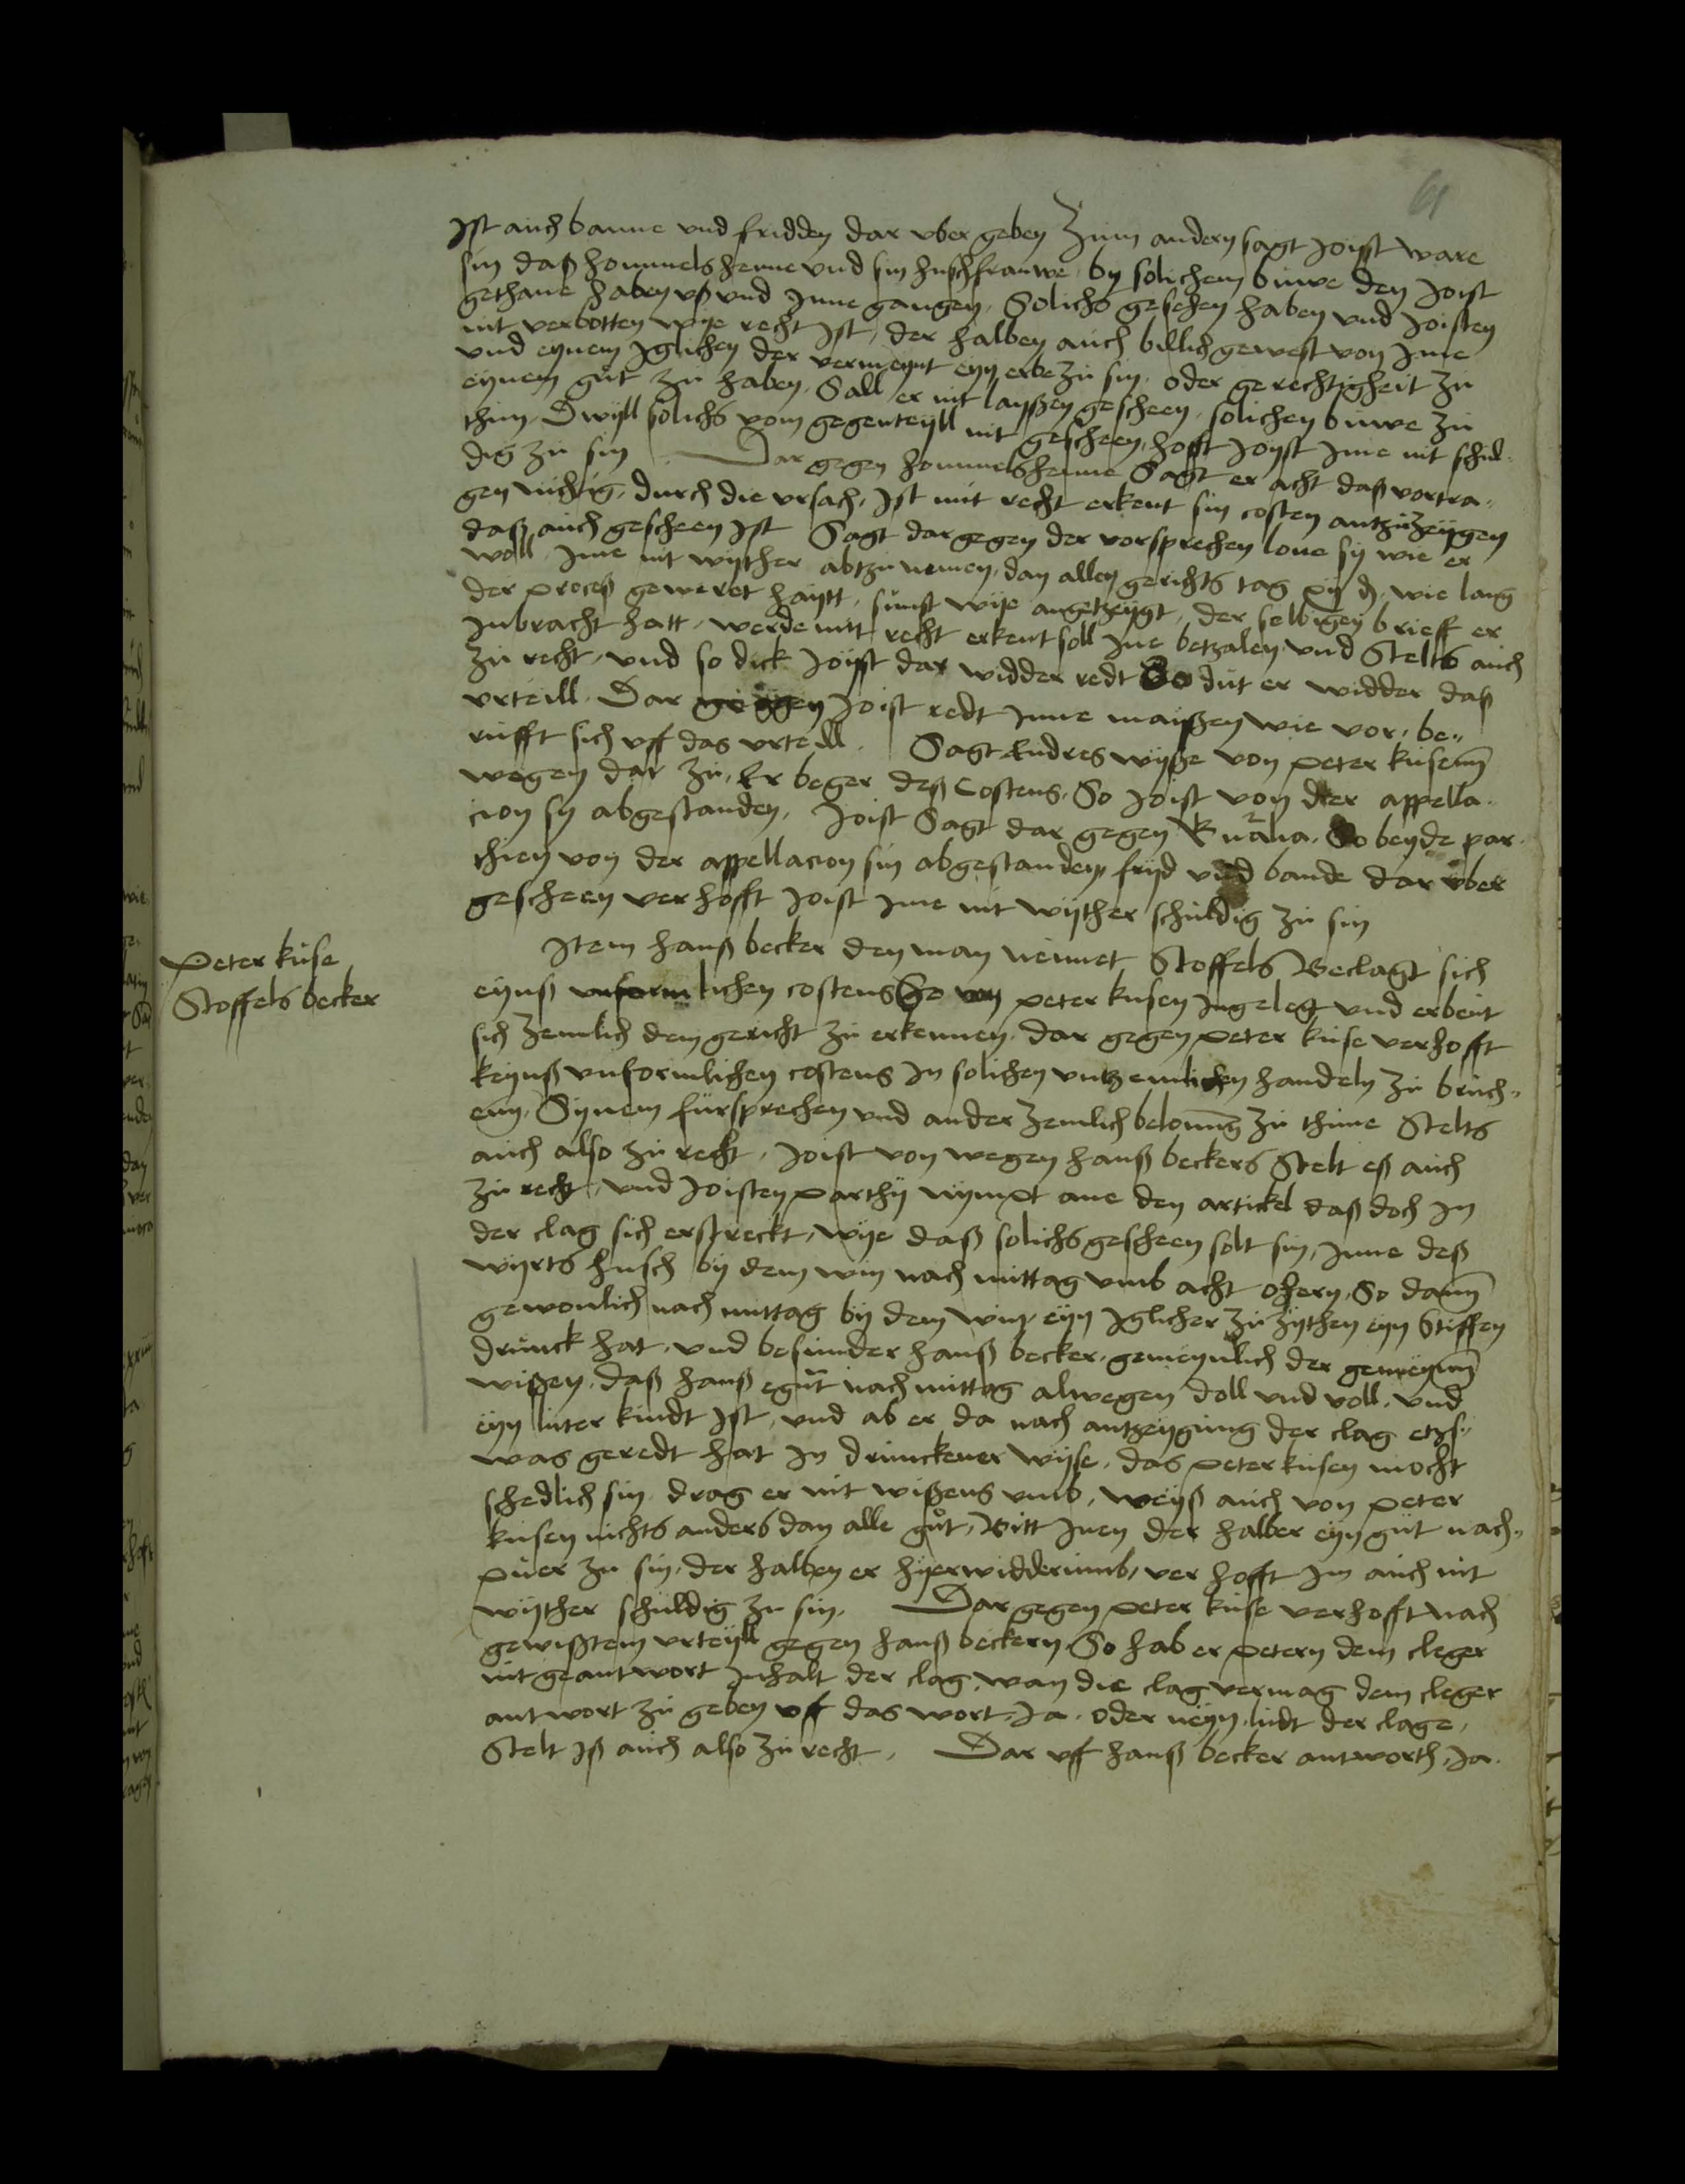 61
Ist auch banne und fridden dar uber geben Zum andern sagt Joist ware
sin daß hommelshenne und sin huschfrauwe by solichem buwe den Joist
gethane haben uß und Inne gangen, Solichs gesehen haben und Joisten
nit verbotten wije recht Ist, der halben auch billich gewest von Ime
und eynem Iglichen der vermeynt eyn erbe zu sin oder gerechtigheit zu
eynem gut zu haben, Sall er nit layßen gescheen, solichen buwe zu
thun, Dwyll solichs vom gegenteyll nit gescheen, hofft Joyst Ime nit schul-
dig zu sin Dar gegen hommelshenne Sagt er acht daß vortra-
gen nichtig, durch die ursach, Ist mit recht erkent sin costen antzuzeygen
daß auch gescheen Ist Sagt dar gegen der vorsprechen lone sy wie er
woll Ime nit wyther abtzunemen, dan allen gerichts tag wie lang
der proceß geweret haytt, sunst wije angetzeygt, der selbigen brieff er
Inbracht hatt, werde mit recht erkent soll Ine betzalen und Stelts auch
zu recht, und so dick Joyst dar widder redt So dut er widder daß
urteill. Dar gegen Joist redt Inne maißen wie vor, be-
rufft sich uff das urteill. Sagt Endres wyße von peter kusenn
wegen dar zu, Er beger deß Costens, So Joist von der appella-
cion sy abgestanden, Joist Sagt dar gegen So beyde par-
thien von der appellacion sin abgestanden, fryd und bande dar uber
gescheen verhofft Joist Ime nit wyther schuldig zu sin
Peter kuse
Stoffels becker
Item hanß becker den man nennet Stoffels Beclagt sich
eynß unformlichen costens So von peter kusen Ingelegt und erbeut
sich zemlich dem gericht zu erkennen, dar gegen peter kuse verhofft
keynß unformlichen costens In solichen untzemlichen handeln zu bruch-
enn, Synem fursprechen und ander zemlich belonung zu thune Stelts
auch also zu recht, Joist von wegen hanß beckers Stelt eß auch
zu recht, und Joisten parthij nympt ane den artickel daß doch In
der clag sich erstreckt, wije daß solichs gescheen solt sin, Inne deß
wyrts husch by dem win nach mittag umb acht ohern, So dann
gewonlich nach mittag by dem win eyn Iglicher zu zythen eyn Stiffen
drunck hat, und besunder hanß becker, gemeynlich der gemeynn
wißen, daß hanß nach mittag alwegen doll und voll, und
eyn luter kindt Ist, und ab er da nach antzeygung der clag etzs-
was geredt hat In drunckener wyse, das peter kusen mocht
schedlich sin drag er nit wißens umb, weyß auch von peter
kusen nichts anders dan alle gut, Bitt Inen der halber eyn gut nach-
puer zu sin, der halben er hyerwidderumb, verhofft Im auch nit
wyther schuldig zu sin, Dar gegen peter kuse verhofft nach
gewißtem urteyll gegen hanß beckern, So hab er petern dem cleger
nit geantwort Inhalt der clag, wan die clag vermag dem cleger
antwort zu geben uff das wort, Ja, oder neyn, ludt der clage,
Stelt Iß auch also zu recht, Dar uff hanß becker antworth, Ja